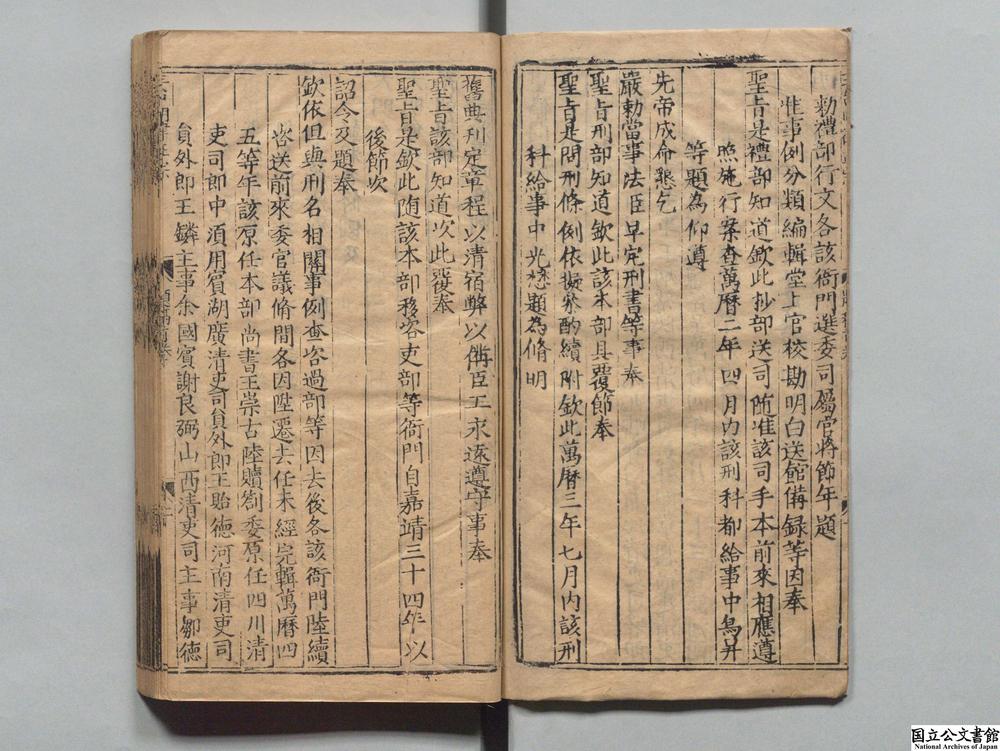 勑禮部行文各該衙門選委司屬官將節年題
准事例分類編輯堂上官校勘明白送館備録等因奉
聖旨是禮部知道欽此抄部送司随准該司手本前來相應遵
照施行案查萬曆二年四月内該刑科都給事中烏昇
等題為仰遵
先帝成命懇乞
嚴勅當事法臣早定刑書等事奉
聖旨刑部知道欽此該本部具覆節奉
聖旨是問刑條例依擬参酌續附欽此萬曆三年七月内該刑
科給事中光懋題為脩明
舊典刋定章程以清宿弊以俻臣工永遠遵守事奉
聖旨該部知道欠此覆奉
聖旨是欽此随該本部移咨吏部等衙門自嘉靖三十四年以
後節次
詔令及題奉
欽依但與刑名相關事例查咨過部等因去後各該衙門陸續
咨送前來委官議脩間各因陞遷去任未經完輯萬曆四
五等年該原任本部尚書王崇古陸贖劄委原任四川清
吏司郎中湏用賓湖廣清吏司貟外郎王貽徳河南清吏司
貟外郎王鏻主事余國賓謝良弼山西清吏司主事鄒徳
国立公文書館
National Archives of Japan